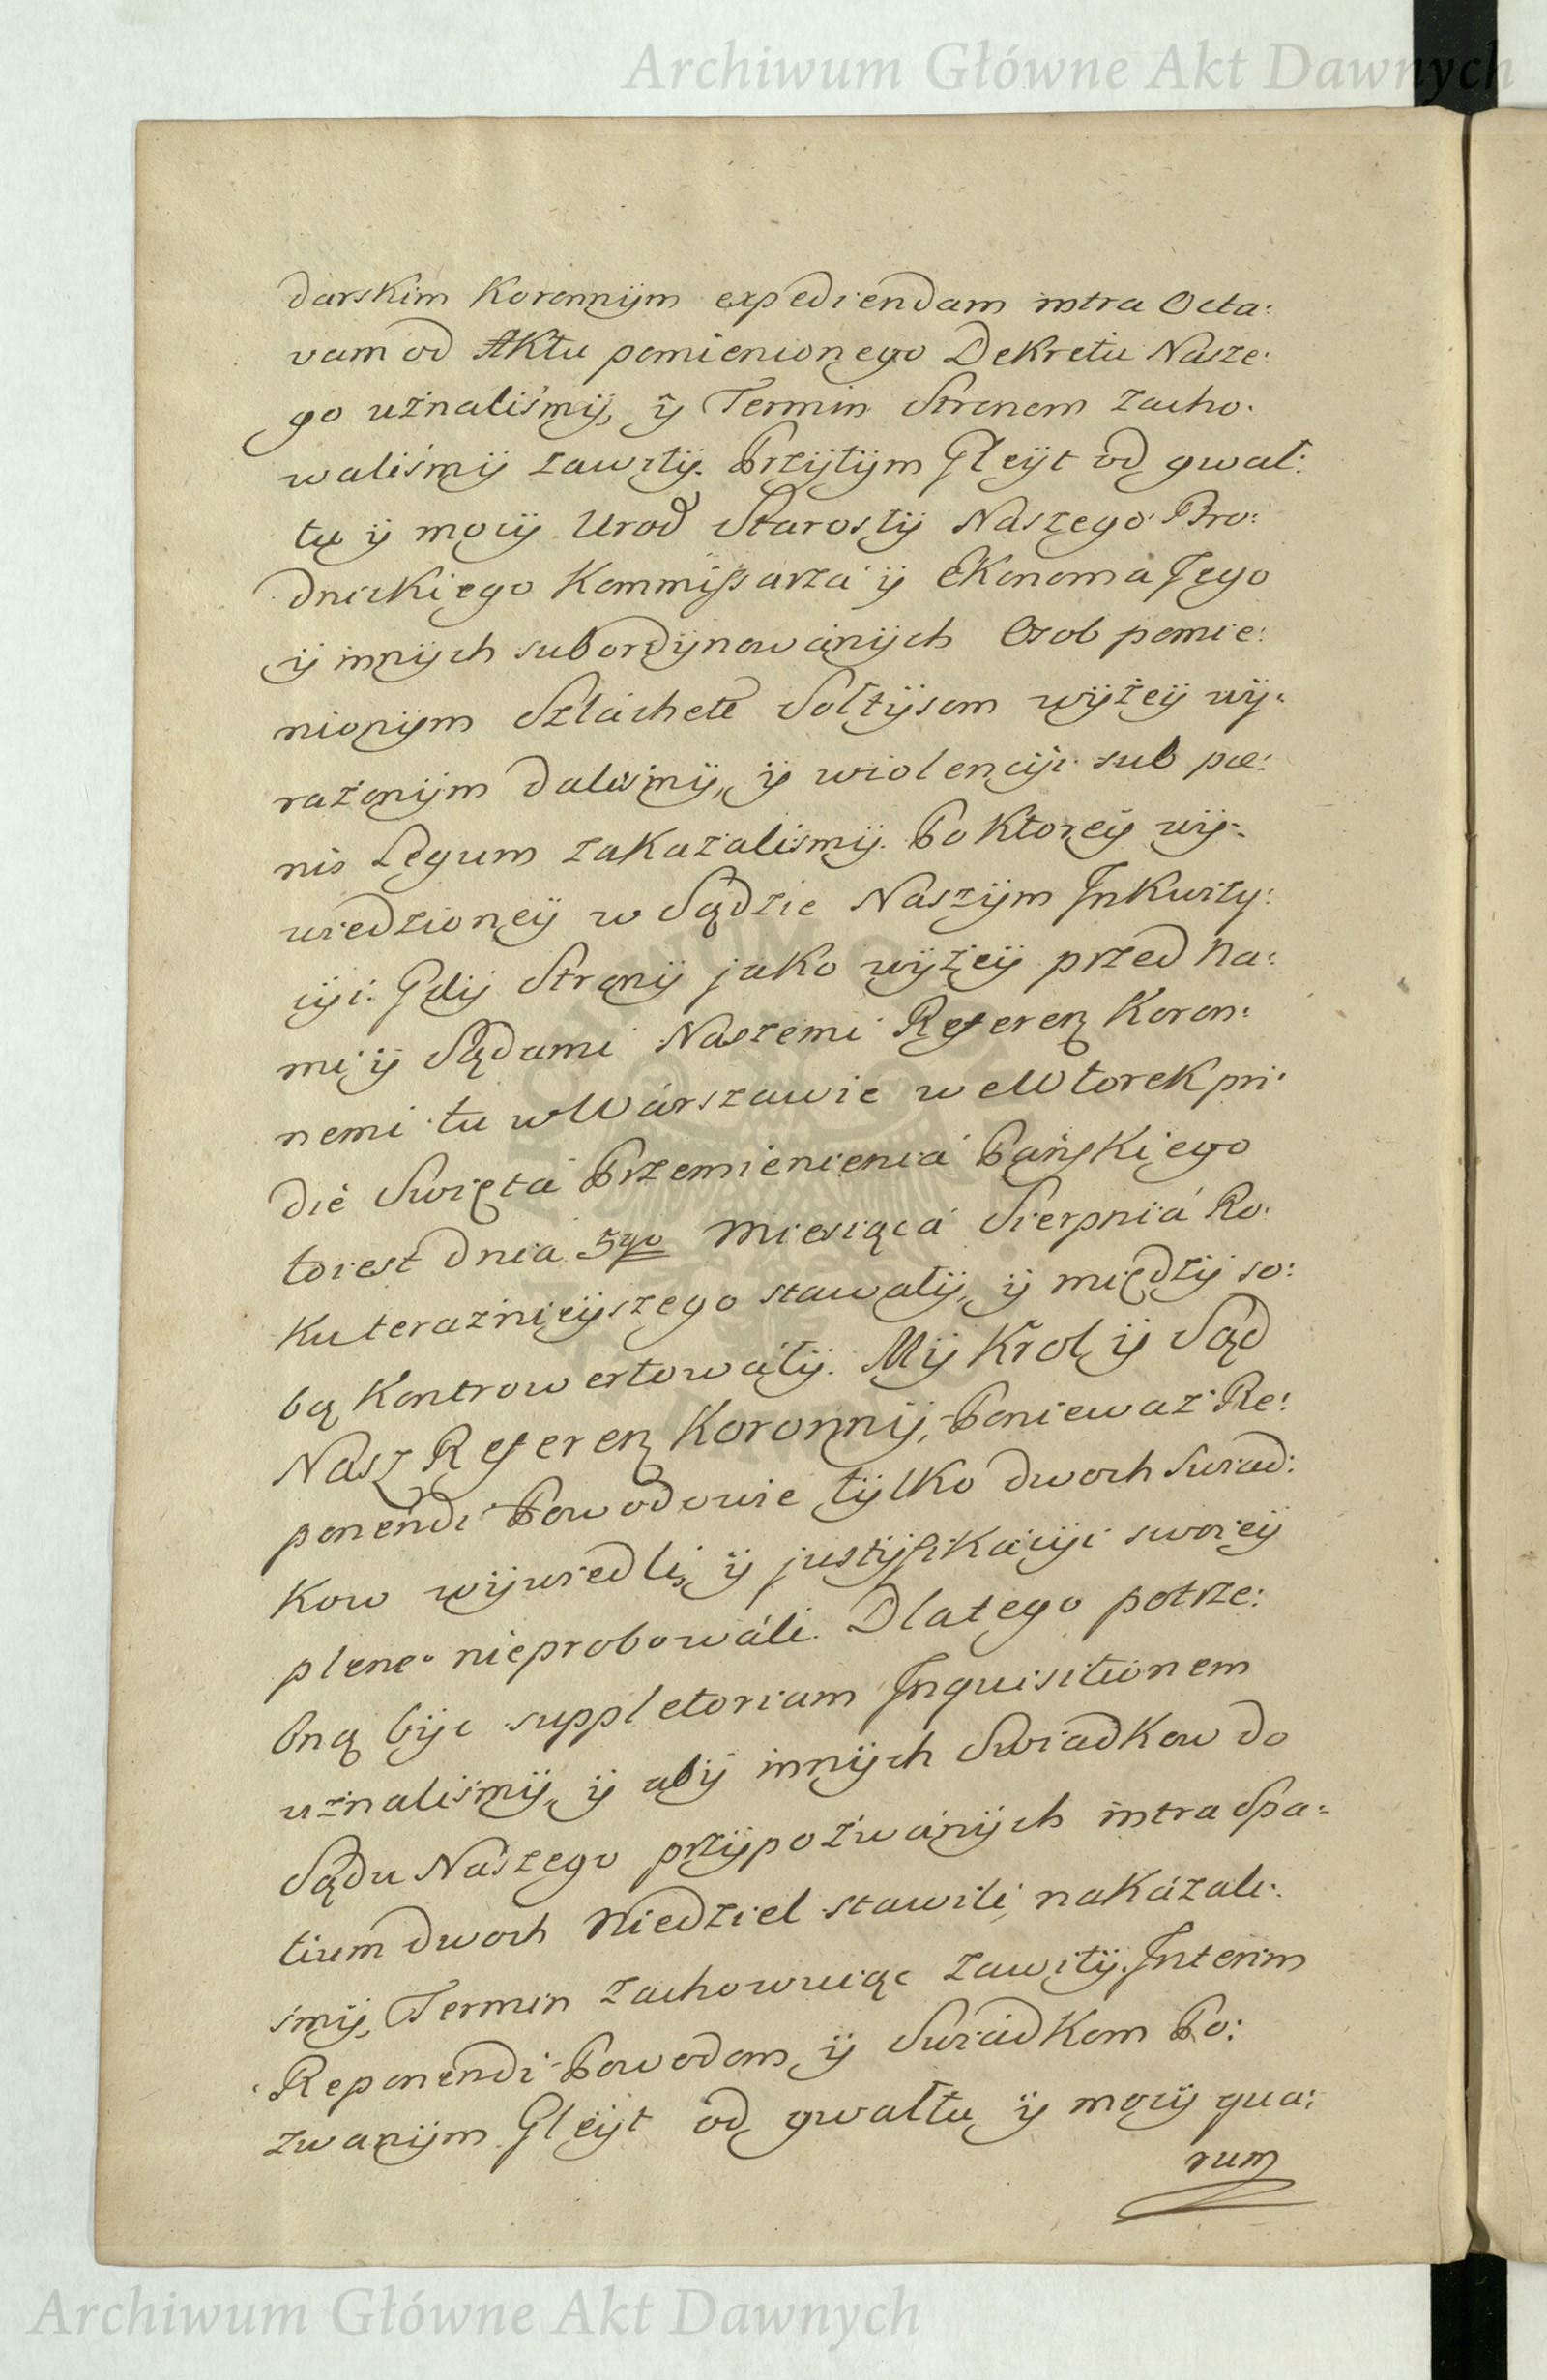 Archiwum Główne Akt Dawnych
darskim Koronnym expediendam intra Octa:
vam od Aktu pomienionego Dekretu Nasze:
go uznaliśmy, ÿ Termin Stronom zacho:
waliśmÿ zawitÿ. Przÿtÿm Gleÿt od gwał:
tu ÿ mocÿ Urod Starostÿ Naszego Bro:
dnickiego Kommissarza ÿ Ekonoma Jego
ÿ innÿch subordÿnowánÿch Osob pomie:
nionÿm Szlachete Sołtÿsom wÿżeÿ wÿ:
rażonÿm daliśmÿ, ÿ wiolencÿi sub pæ:
nis Legum zakazaliśmÿ. Po ktoreÿ wÿ:
wiedzioneÿ w Sądzie Naszÿm Inkwizy:
cÿi. Gdÿ Stronÿ jako wÿżeÿ przed Na:
mi ÿ Sądami Naszemi Referen Koron:
nemi tu w Wárszawie we Wtorek pri:
die Swięta Przemienieniá Pańskiego
toiest dnia 5go Miesiącá Sierpniá Ro:
ku terazniéÿszego stawałÿ, ÿ międzÿ so:
bą kontrowertowałÿ. Mÿ Krol ÿ Sąd
Nasz Referen Koronnÿ, Poniewaz Re:
ponendi Powodowie tÿlko dwoch Swiad:
kow wÿwiedli, ÿ justÿfikacÿi swoieÿ
plene nieprobowáli. Dlatego potrze:
bną bÿc suppletoriam Inquisitionem
uznaliśmÿ, ÿ abÿ innÿch Swiadkow do
Sądu Naszego przÿpozwánÿch intra Spa:
tium dwoch Niedziel stawili nakázali:
śmÿ, Termin zachowuiąc zawitÿ. Interim
Reponendi Powodom ÿ Swiádkom Po:
zwanÿm Gleÿt od gwałtu ÿ mocÿ qua:
rum
Archiwum Główne Akt Dawnych